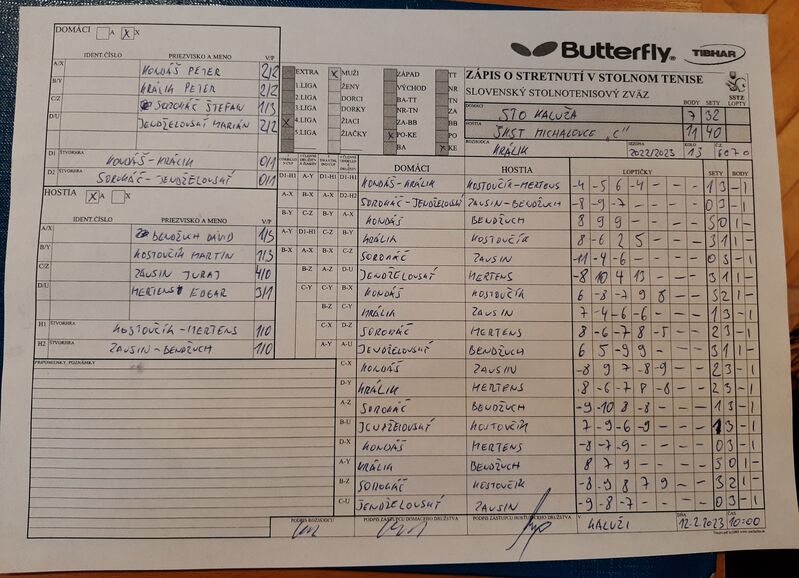 DOMÁCI A X X
Butterfly TIBHAR
IDENT.ČÍSLO PRIEZVISKO A MENO V/P
A/X KONDÁŠ PETER 2/2
B/Y KRÁLIK PETER 2/2
C/Z SOROKÁČ ŠTEFAN 1/3
D/U JENDŽELOVSKÝ MARIÁN 2/2
D1 ŠTVORHRA KONDÁŠ-KRÁLIK 0/1
D2 ŠTVORHRA SOROKÁČ-JENDŽELOVSKÝ 0/1
EXTRA X MUŽI ZÁPAD TT
1.LIGA ŽENY VÝCHOD NR
2.LIGA DORCI BA-TT TN
3.LIGA DORKY NR-TN ZA
X 4.LIGA ŽIACI ZA-BB BB
5.LIGA ŽIAČKY X PO-KE PO
BA X KE
ZÁPIS O STRETNUTÍ V STOLNOM TENISE
SLOVENSKÝ STOLNOTENISOVÝ ZVÄZ
SSTZ
BODY SETY LOPTY
DOMÁCI STO KALUŽA 7 32
HOSTIA ŠKST MICHALOVCE "C" 11 40
ROZHODCA KRÁLIK SEZÓNA 2022/2023 KOLO 13 Č.
HOSTIA X A X
IDENT.ČÍSLO PRIEZVISKO A MENO V/P
A/X BENDŽUCH DÁVID 1/3
B/Y KOSTOVČÍK MARTIN 1/3
C/Z ZAUSIN JURAJ 4/0
D/U MERTENS EDGAR 3/1
H1 ŠTVORHRA KOSTOVČÍK-MERTENS 1/0
H2 ŠTVORHRA ZAUSIN-BENDŽUCH 1/0
PRIPOMIENKY, POZNÁMKY
DOMÁCI HOSTIA LOPTIČKY SETY BODY
D1-H1 A-Y D1-H1 D1-H1 KONDÁŠ-KRÁLIK KOSTOVČÍK-MERTENS -4 -5 6 -4 - - - 1 3 - 1
A-X B-X A-X D2-H2 SOROKÁČ-JENDŽELOVSKÝ ZAUSIN-BENDŽUCH -8 -9 -7 - - - - 0 3 - 1
B-Y C-Z B-Y A-X KONDÁŠ BENDŽUCH 8 9 9 - - - - 3 0 1 -
A-Y D1-H1 C-Z B-Y KRÁLIK KOSTOVČÍK 8 -6 2 5 - - - 3 1 1 -
B-X A-X B-X C-Z SOROKÁČ ZAUSIN -11 -4 -6 - - - - 0 3 - 1
B-Z A-Z D-U JENDŽELOVSKÝ MERTENS -8 10 4 13 - - - 3 1 1 -
C-Y C-Y B-X KONDÁŠ KOSTOVČÍK 6 -8 -7 9 8 - - 3 2 1 -
B-Z C-Y KRÁLIK ZAUSIN 7 -4 -6 -6 - - - 1 3 - 1
C-X D-Z SOROKÁČ MERTENS 8 -6 -7 8 -5 - - 2 3 - 1
A-Y A-U JENDŽELOVSKÝ BENDŽUCH 6 5 -9 9 - - - 3 1 1 -
C-X KONDÁŠ ZAUSIN -8 9 7 -8 -9 - - 2 3 - 1
D-Y KRÁLIK MERTENS 8 -6 -7 8 -8 - - 2 3 - 1
A-Z SOROKÁČ BENDŽUCH -9 -10 8 -8 - - - 1 3 - 1
B-U JENDŽELOVSKÝ KOSTOVČÍK 7 -9 -6 -9 - - - 1 3 - 1
D-X KONDÁŠ MERTENS -8 -7 -9 - - - - 0 3 - 1
A-Y KRÁLIK BENDŽUCH 8 7 9 - - - - 3 0 1 -
B-Z SOROKÁČ KOSTOVČÍK -8 -9 8 7 9 - - 3 2 1 -
C-U JENDŽELOVSKÝ ZAUSIN -9 -8 -7 - - - - 0 3 - 1
PODPIS ROZHODCU PODPIS ZÁSTUPCU DOMÁCEHO DRUŽSTVA PODPIS ZÁSTUPCU HOSŤUJÚCEHO DRUŽSTVA V KALUŽI DŇA 12.2.2023 ČAS 10:00